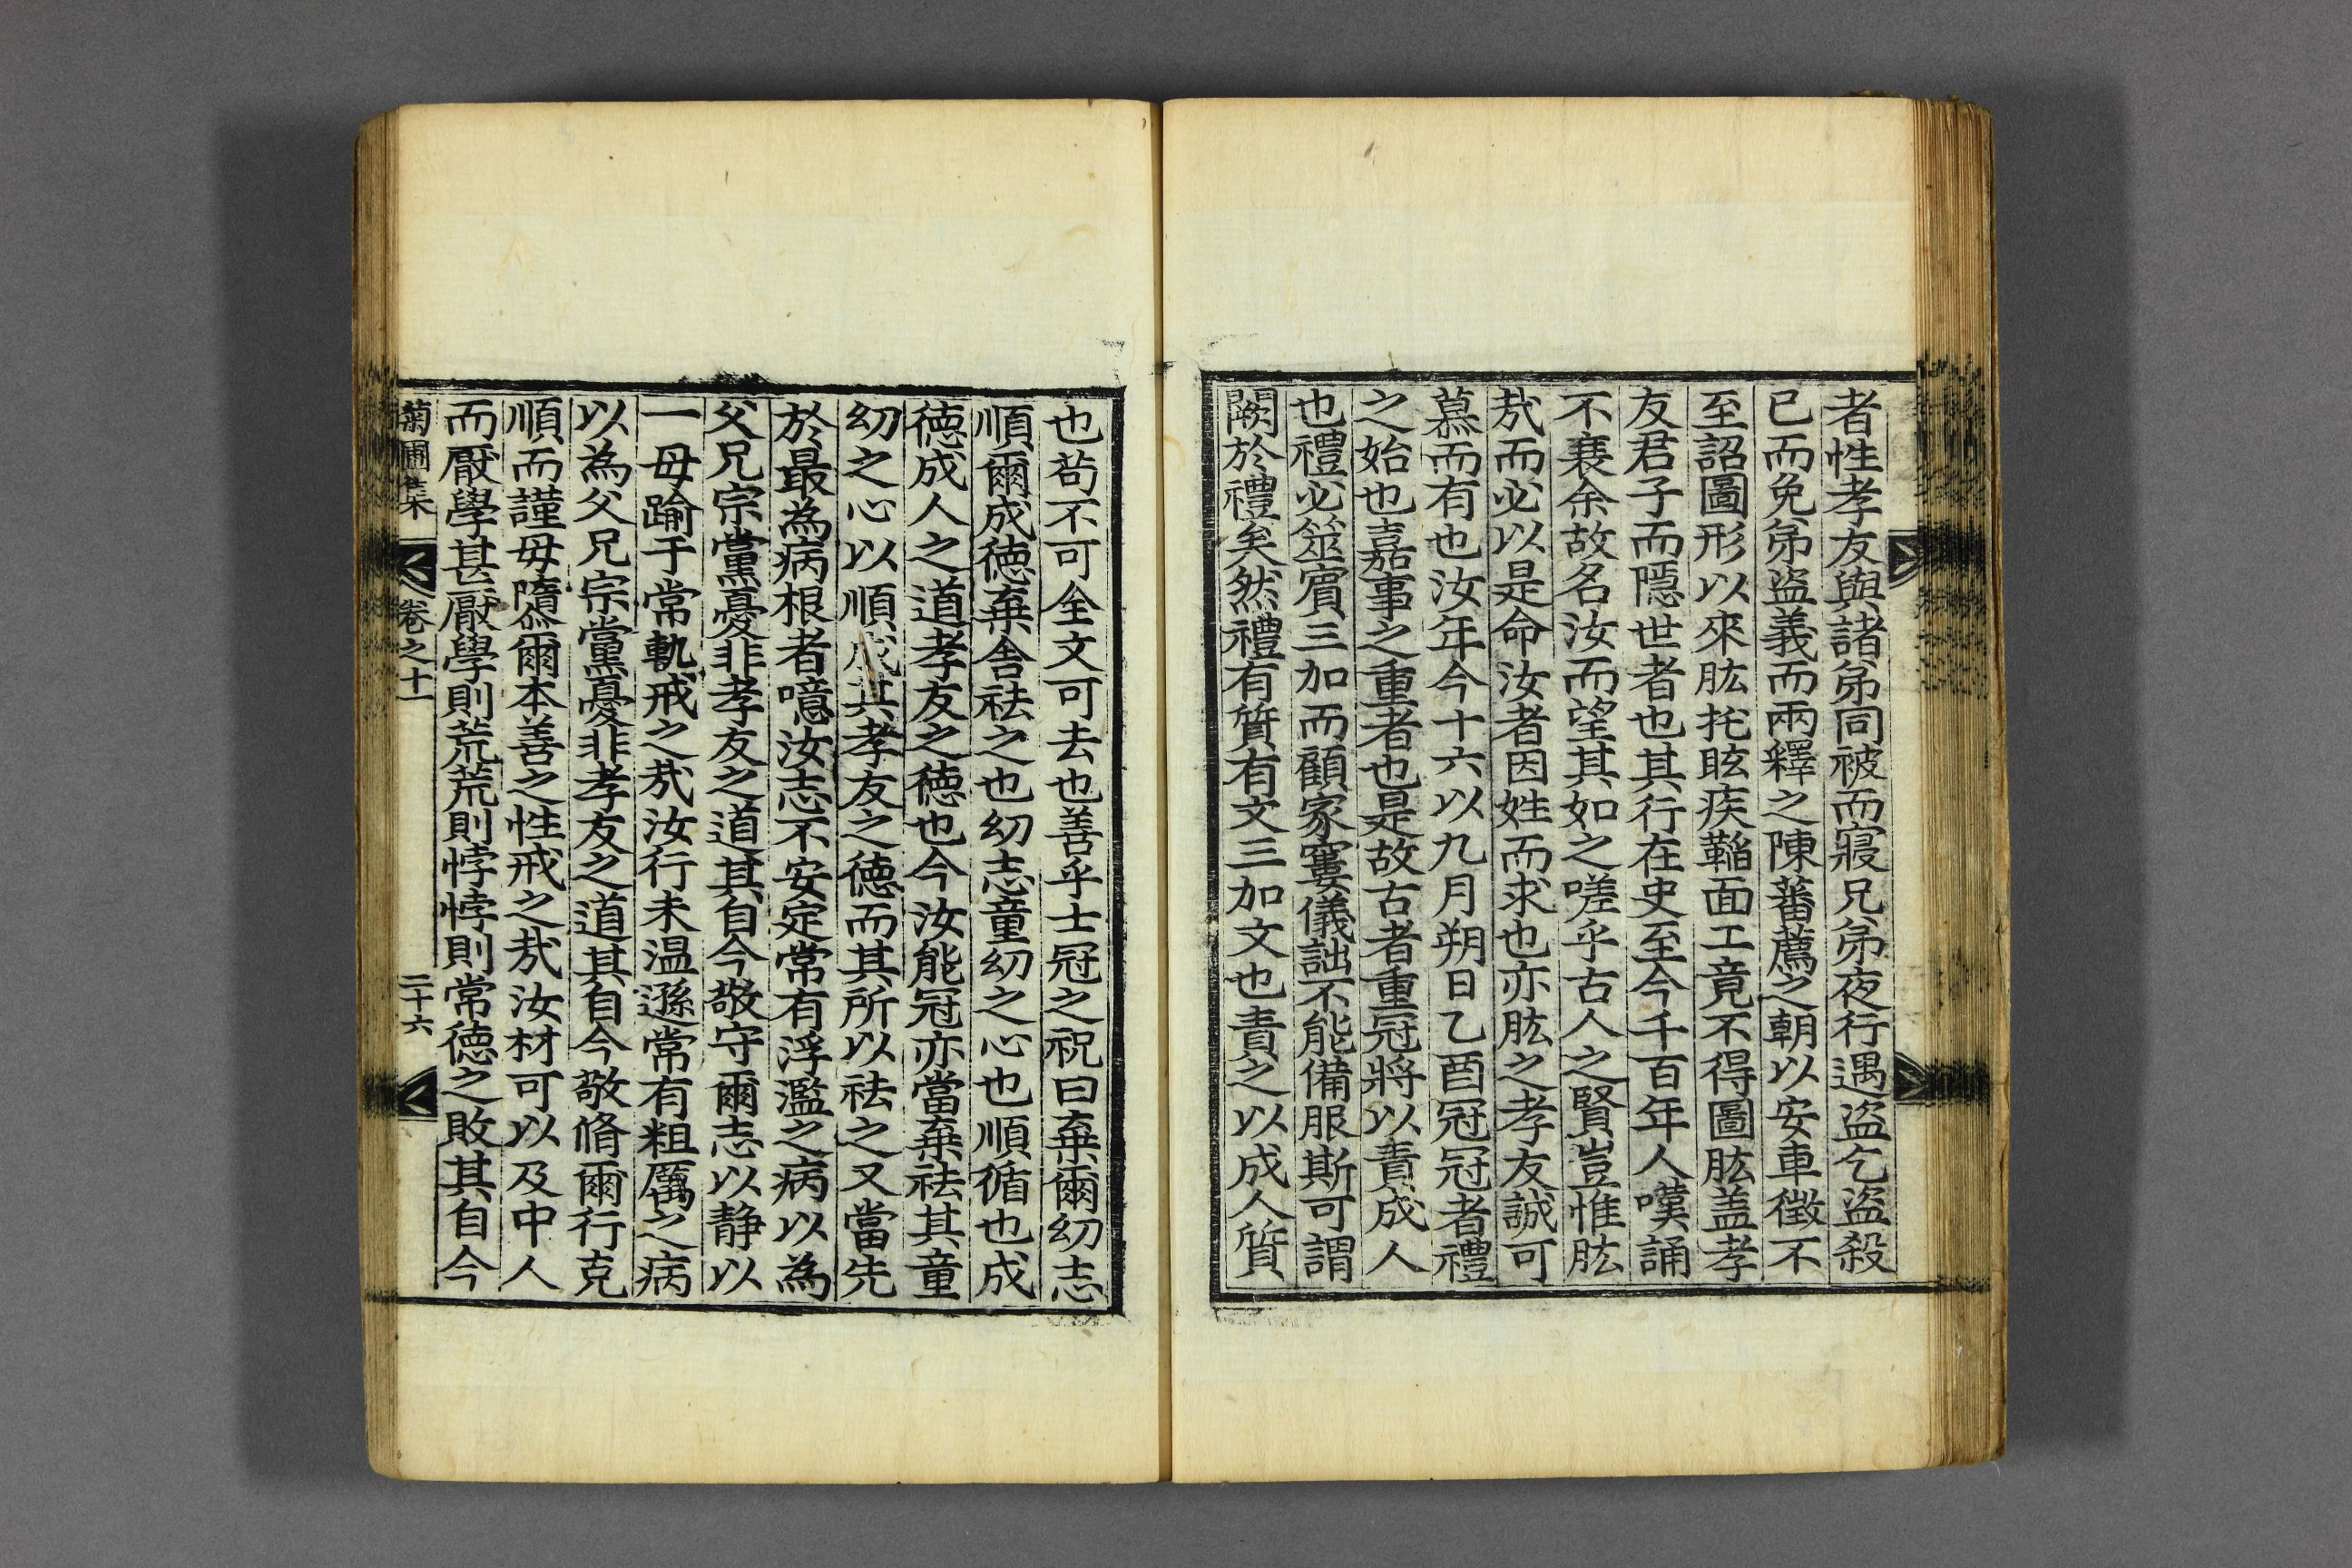 者性孝友與諸弟同被而寢兄弟夜行遇盜乞盜殺
已而免弟盜義而兩釋之陳蕃薦之朝以安車徵不
至詔圖形以來肱托眩疾韜面工竟不得圖肱盖孝
友君子而隱世者也其行在史至今千百年人嘆誦
不衰余故名汝而望其如之嗟乎古人之賢豈惟肱
㢤而必以是命汝者因姓而求也亦肱之孝友誠可
慕而有也汝年今十六以九月朔日乙酉冠冠者禮
之始也嘉事之重者也是故古者重冠將以責成人
也禮必筮賓三加而顧家窶儀詘不能備服斯可謂
闕於禮矣然禮有質有文三加文也責之以成人質
也苟不可全文可去也善乎士冠之祝曰棄爾幼志
順爾成德棄舍袪之也幼志童幼之心也順循也成
德成人之道孝友之德也今汝能冠亦當棄袪其童
幼之心以順成其孝友之德而其所以袪之又當先
於最為病根者噫汝志不安定常有浮濫之病以為
父兄宗黨憂非孝友之道其自今敬守爾志以静以
一毋踰于常軌戒之㢤汝行未温遜常有粗厲之病
以為父兄宗黨憂非孝友之道其自今敬脩爾行克
順而謹毋隳爾本善之性戒之㢤汝材可以及中人
而厭學甚厭學則荒荒則悖悖則常德之敗其自今
菊圃集 卷之十一 二十六